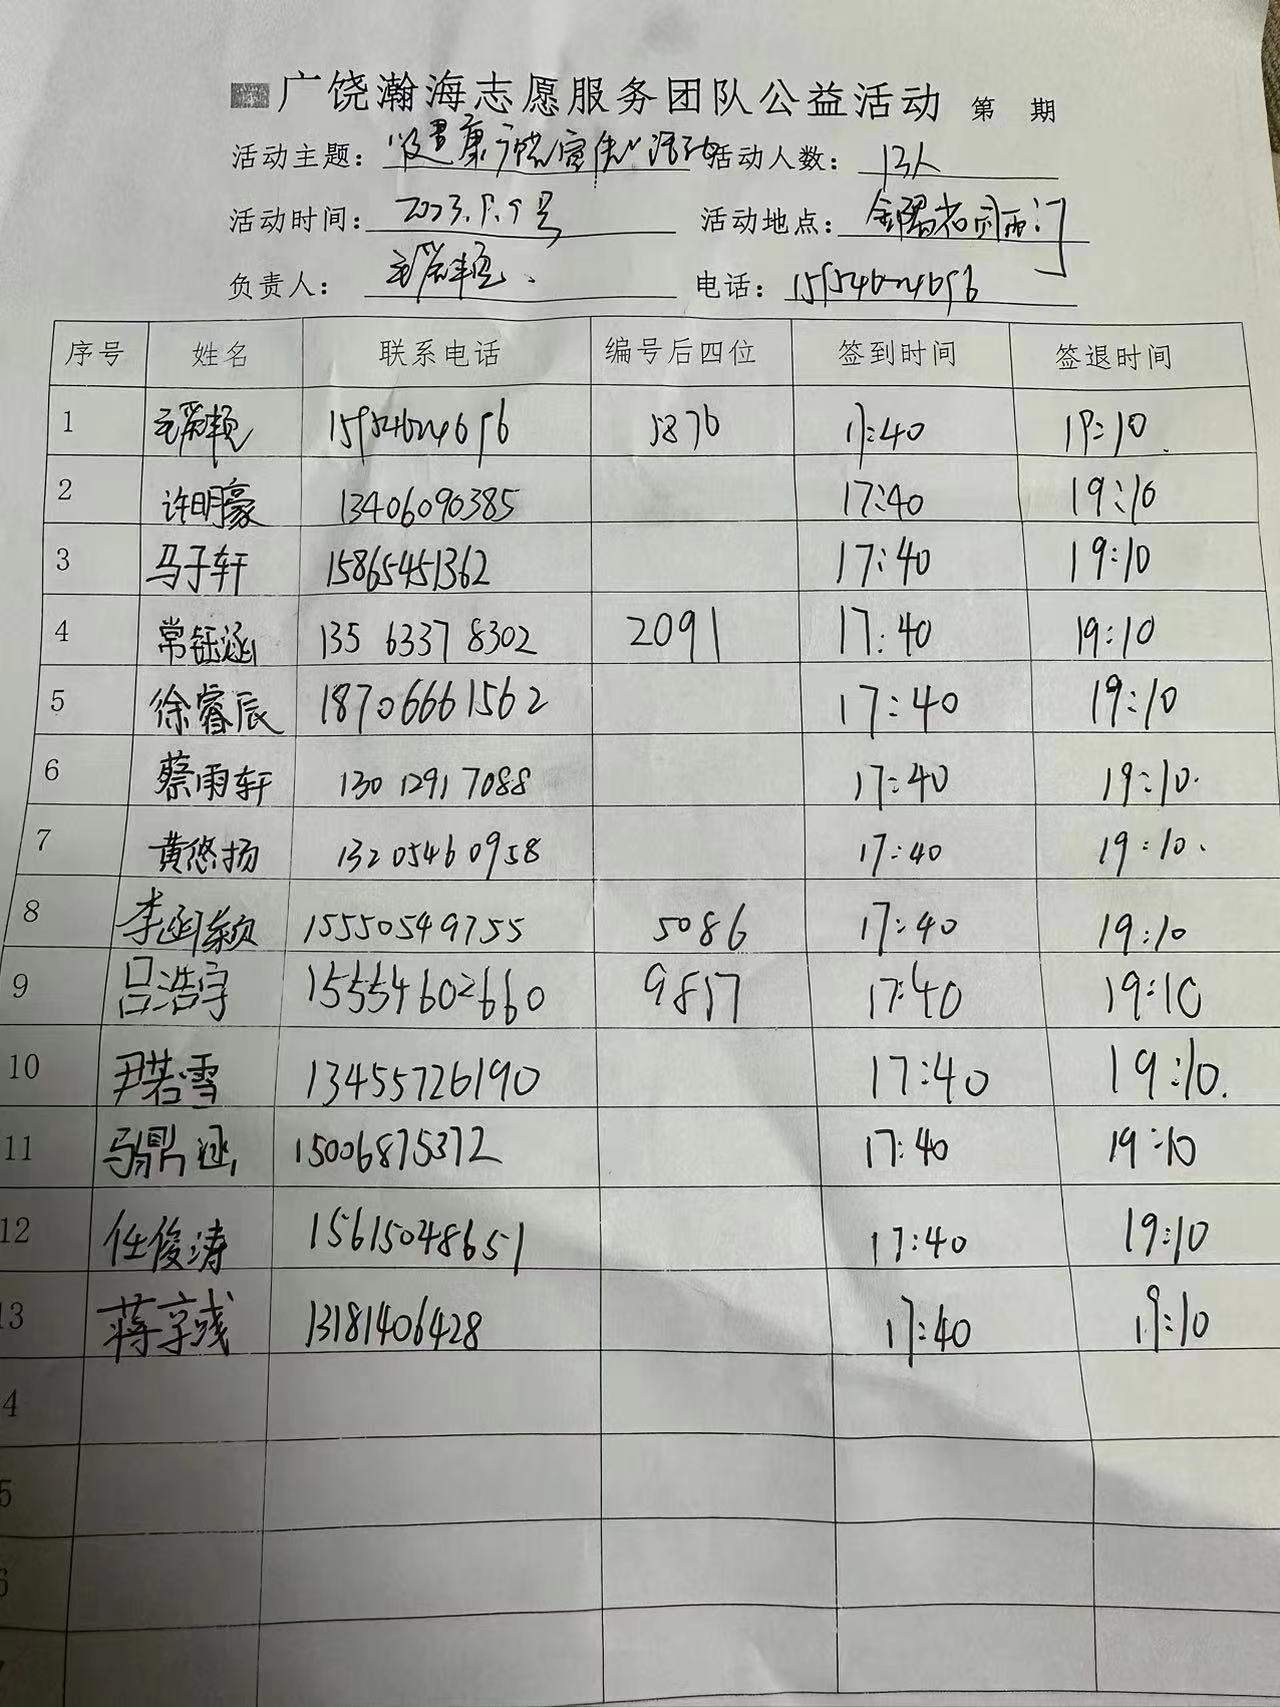 广饶瀚海志愿服务团队公益活动 第 期
活动主题: 健康广饶宣传活动 活动人数: 13人
活动时间: 2023.9.9号 活动地点: 西门
负责人: 电话:
序号 姓名 联系电话 编号后四位 签到时间 签退时间
1 5876 17:40 19:10
2 许明豪 13406090385 17:40 19:10
3 马子轩 15865451362 17:40 19:10
4 常钰涵 135 6337 8302 2091 17:40 19:10
5 徐睿辰 18706661562 17:40 19:10
6 蔡雨轩 130 1291 7088 17:40 19:10.
7 黄悠扬 13205460958 17:40 19:10.
8 李函颖 15550549755 5086 17:40 19:10
9 吕浩宇 15554602660 9817 17:40 19:10
10 尹若雪 13455726190 17:40 19:10.
11 马鼎涵 15006875372 17:40 19:10
12 任俊涛 15615048651 17:40 19:10
13 蒋 13181406428 17:40 19:10
4
5
6